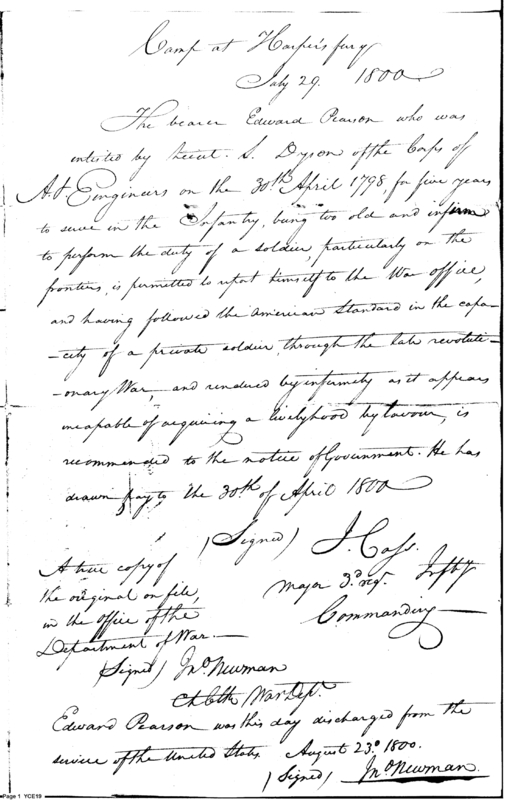 Camp at Harper's fery
July 29. 1800
The bearer Edward Pearson who was
inlisted by Lieut. S. Dyson of the Corps of
A & Eengineers on the 30th April 1798, for five years
to serve in the Infantry, being too old and infirm
to perform the duty of a soldier, particularly on the
frontiers, is permitted to repot himself to the War office,
and having followed the American Standard in the capa-
-city of a private soldier, through the late revoluti-
-onary War, and rendered by infirmity as it appears
incapable of acquiring a livelyhood by lavour, is
recommended to the notice of Government. He has
drawn pay to the 30th of April 1800
(Signed) J. Cass.
Major 3d regt. Infty
Commanding
A true copy of
the original on file,
in the office of the
Department of War.—
(Signed) Jno Newman
Ch Clk War Dept.
Edward Pearson was this day discharged from the
service of the United States. August 23d 1800.
(Signed) Jno Newman.
Page 1 YCE19